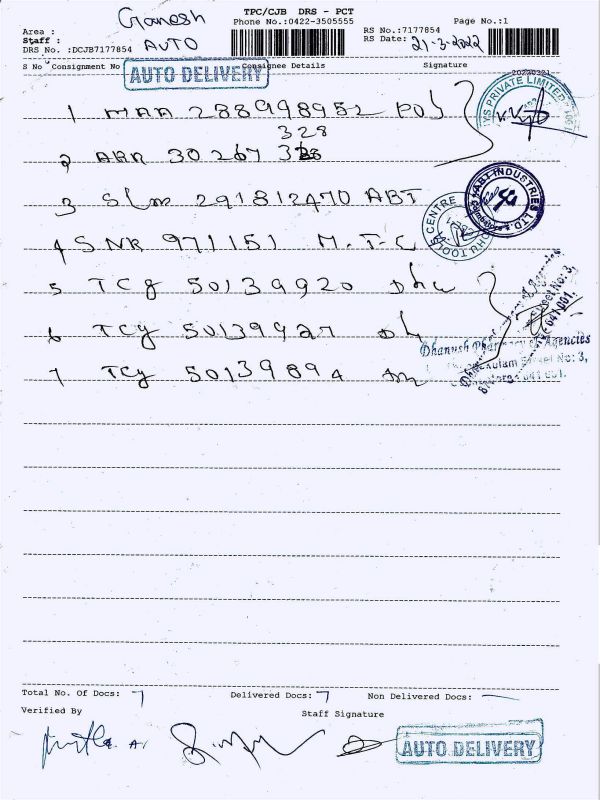 TPC/CJB DRS - PCT
Ganesh
Phone No.:0422-3505555
Page No.:1
Area :
Staff : AUTO
RS No.:7177854
RS Date: 21-3-2022
DRS No. :DCJB7177854
S No Consignment No Consignee Details Signature
AUTO DELIVERY
20220321
YS PRIVATE LIMITED
1 MAA 288998952
328
2 ARR 30267 328
3 Slm 291812470 ABT
ABT INDUSTRIES LTD.
4 SNR 971151 M.T.C
TOOLS CENTRE
5 TCy 50139920 Dhu
6 TCy 50139927 Dh
Dhanush Pharma Agencies
7 TCy 50139894
Street No: 3,
641 001.
Total No. Of Docs: 7 Delivered Docs: 7 Non Delivered Docs: —
Verified By
Staff Signature
AUTO DELIVERY